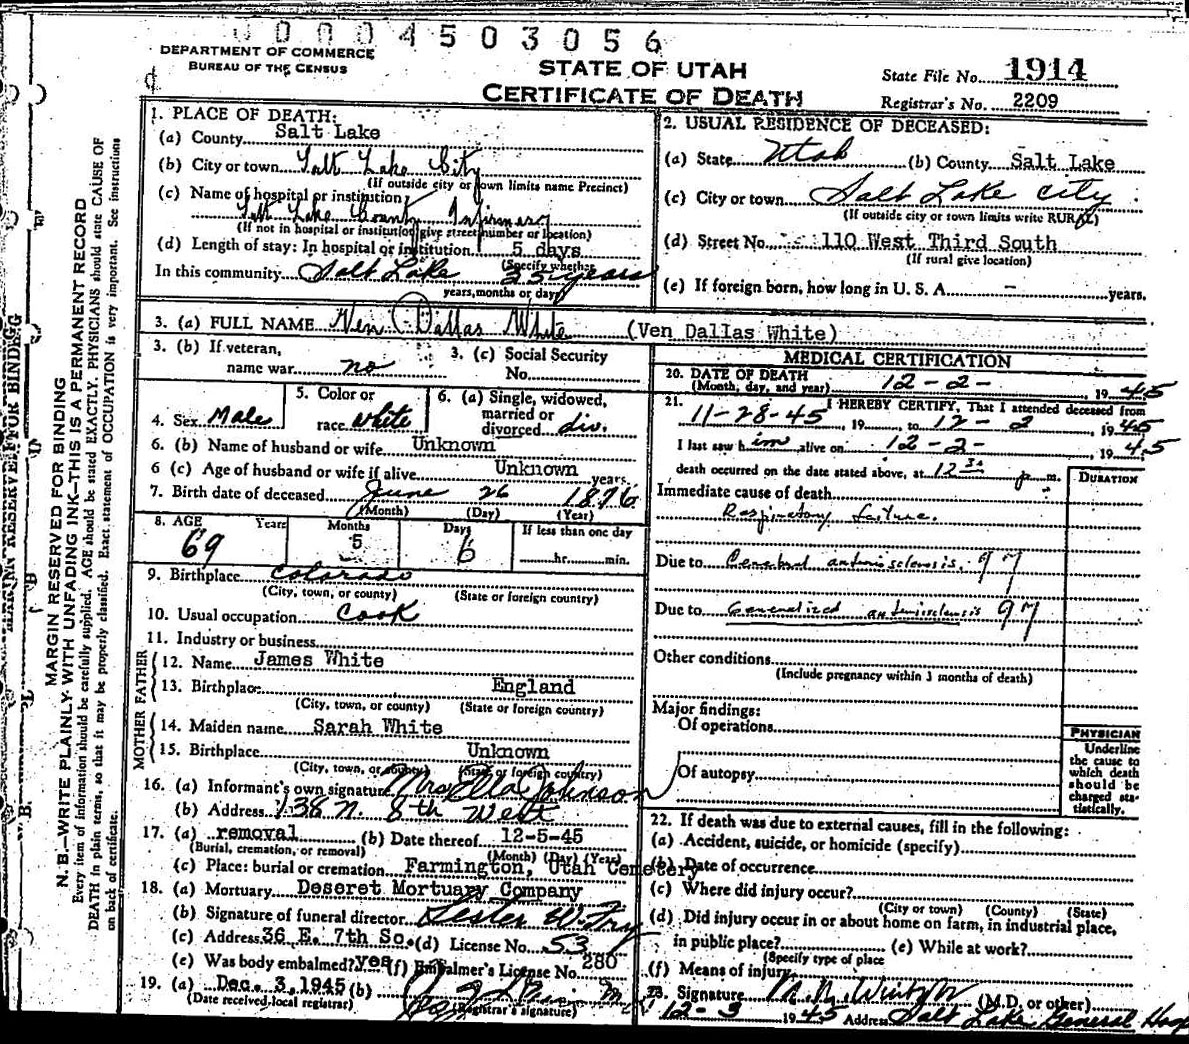 00004503056
DEPARTMENT OF COMMERCE
BUREAU OF THE CENSUS
STATE OF UTAH
CERTIFICATE OF DEATH
State File No. 1914
Registrar's No. 2209
MARGIN RESERVED FOR BINDING
N. B.—WRITE PLAINLY—WITH UNFADING INK—THIS IS A PERMANENT RECORD
Every item of information should be carefully supplied. AGE should be stated EXACTLY. PHYSICIANS should state CAUSE OF
DEATH in plain terms, so that it may be properly classified. Exact statement of OCCUPATION is very important. See instructions
on back of certificate.
1. PLACE OF DEATH:
(a) County Salt Lake
(b) City or town Salt Lake City
(If outside city or town limits name Precinct)
(c) Name of hospital or institution
Salt Lake County Infirmary
(If not in hospital or institution give street number or location)
(d) Length of stay: In hospital or institution 5 days
(Specify whether
In this community Salt Lake 25 years
years, months or days)
2. USUAL RESIDENCE OF DECEASED:
(a) State Utah (b) County Salt Lake
(c) City or town Salt Lake City
(If outside city or town limits write RURAL)
(d) Street No. 110 West Third South
(If rural give location)
(e) If foreign born, how long in U. S. A. - years.
3. (a) FULL NAME Ven Dallas White (Ven Dallas White)
3. (b) If veteran,
name war no
3. (c) Social Security
No.
4. Sex Male
5. Color or
race White
6. (a) Single, widowed,
married or
divorced div.
6. (b) Name of husband or wife Unknown
6 (c) Age of husband or wife if alive Unknown years
7. Birth date of deceased June 26 1876
(Month) (Day) (Year)
8. AGE Years Months Days If less than one day
69 5 6 hr. min.
9. Birthplace Colorado
(City, town, or county) (State or foreign country)
10. Usual occupation Cook
11. Industry or business
FATHER
12. Name James White
13. Birthplace England
(City, town, or county) (State or foreign country)
MOTHER
14. Maiden name Sarah White
15. Birthplace Unknown
(City, town, or county) (State or foreign country)
16. (a) Informant's own signature Mrs Ella Johnson
(b) Address 138 N. 8th West
17. (a) removal (b) Date thereof 12-5-45
(Burial, cremation, or removal) (Month) (Day) (Year)
(c) Place: burial or cremation Farmington, Utah Cemetery
18. (a) Mortuary Deseret Mortuary Company
(b) Signature of funeral director
(c) Address 36 E. 7th So. (d) License No. 53
(e) Was body embalmed? yes (f) Embalmer's License No. 280
19. (a) Dec. 3, 1945 (b)
(Date received local registrar) (Registrar's signature)
MEDICAL CERTIFICATION
20. DATE OF DEATH
(Month, day, and year) 12-2- 1945
21. I HEREBY CERTIFY, That I attended deceased from
11-28-45, 19 , to 12-2, 1945
I last saw him alive on 12-2-, 1945
death occurred on the date stated above, at 12 30 p. m.
DURATION
Immediate cause of death
Respiratory failure.
Due to Cerebral arteriosclerosis. 97
Due to Generalized arteriosclerosis 97
Other conditions
(Include pregnancy within 3 months of death)
Major findings:
Of operations
Of autopsy
PHYSICIAN
Underline
the cause to
which death
should be
charged sta-
tistically.
22. If death was due to external causes, fill in the following:
(a) Accident, suicide, or homicide (specify)
(b) Date of occurrence
(c) Where did injury occur?
(City or town) (County) (State)
(d) Did injury occur in or about home on farm, in industrial place,
in public place? (e) While at work?
(Specify type of place
(f) Means of injury
23. Signature (M.D. or other)
12-3 1945 Address Salt Lake General Hosp